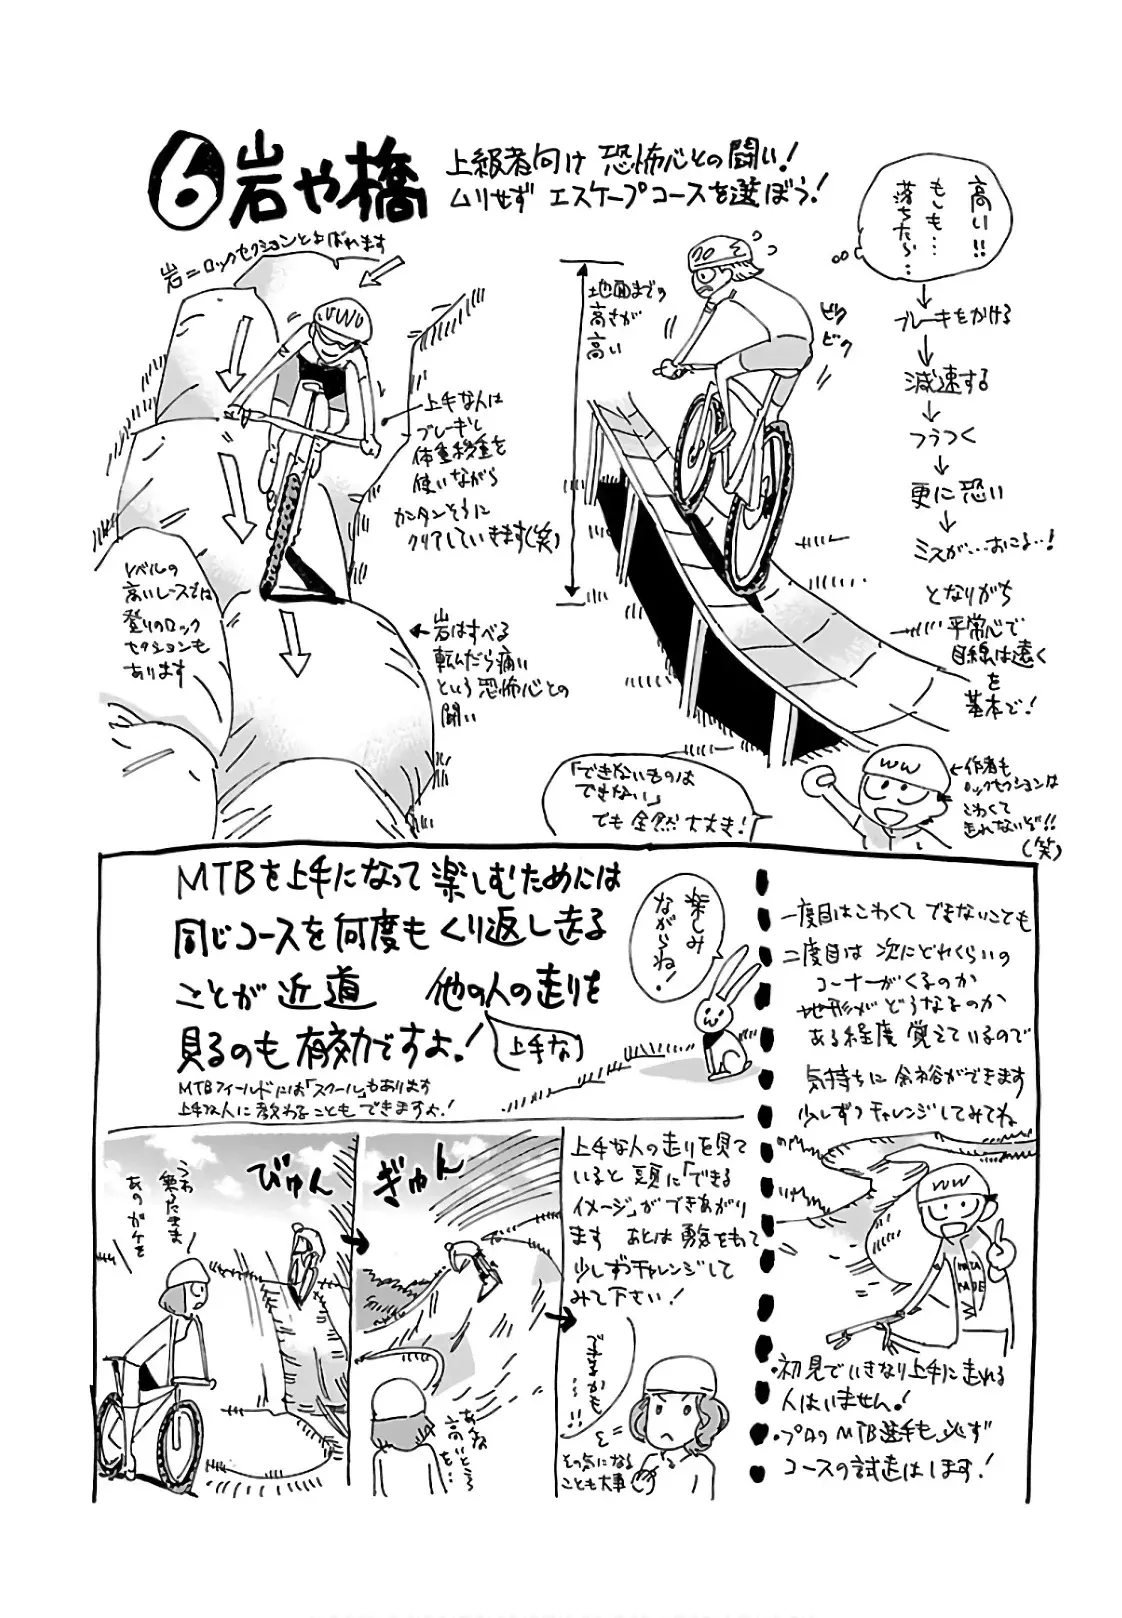 ⑥岩や橋
上級者向け 恐怖心との闘い!
ムリせず エスケープコースを選ぼう!
岩=ロックセクションとよばれます
上手な人は
ブレーキし
体重移動を
使いながら
カンタンそうに
クリアしていきます(笑)
レベルの
高いレースでは
登りのロック
セクションも
あります
←岩はすべる
転んだら痛い
という恐怖心との
闘い
地面までの
高さが
高い
ビク
ビク
高い!!
もしも…
落ちたら…
↓
ブレーキをかける
↓
減速する
↓
ふらつく
↓
更に恐い
↓
ミスが…おこる…!
となりがち
平常心で
目線は遠く
を
基本で!
「できないものは
できない」
でも全然大丈夫!
←作者も
ロックセクションは
こわくて
走れないぞ!!
(笑)
MTBを上手になって楽しむためには
同じコースを何度もくり返し走る
ことが近道 他の人の走りを
見るのも有効ですよ!
(上手な)
MTBフィールドには「スクール」もあります
上手な人に教わることもできますよ!
楽しみ
ながらね!
一度目はこわくてできないことも
二度目は次にどれくらいの
コーナーがくるのか
地形がどうなるのか
ある程度覚えているので
気持ちに余裕ができます
少しずつチャレンジしてみてね
・初見でいきなり上手に走れる
人はいません!
・プロのMTB選手も必ず
コースの試走はします!
うわ
乗ったまま
あのガケを
びゅん
ぎゅん
あんな
高いところ
を…
上手な人の走りを見て
いると頭に「できる
イメージ」ができあがり
ます あとは勇気をもって
少しずつチャレンジして
みて下さい!
できるかも
…!!
その気になる
ことも大事